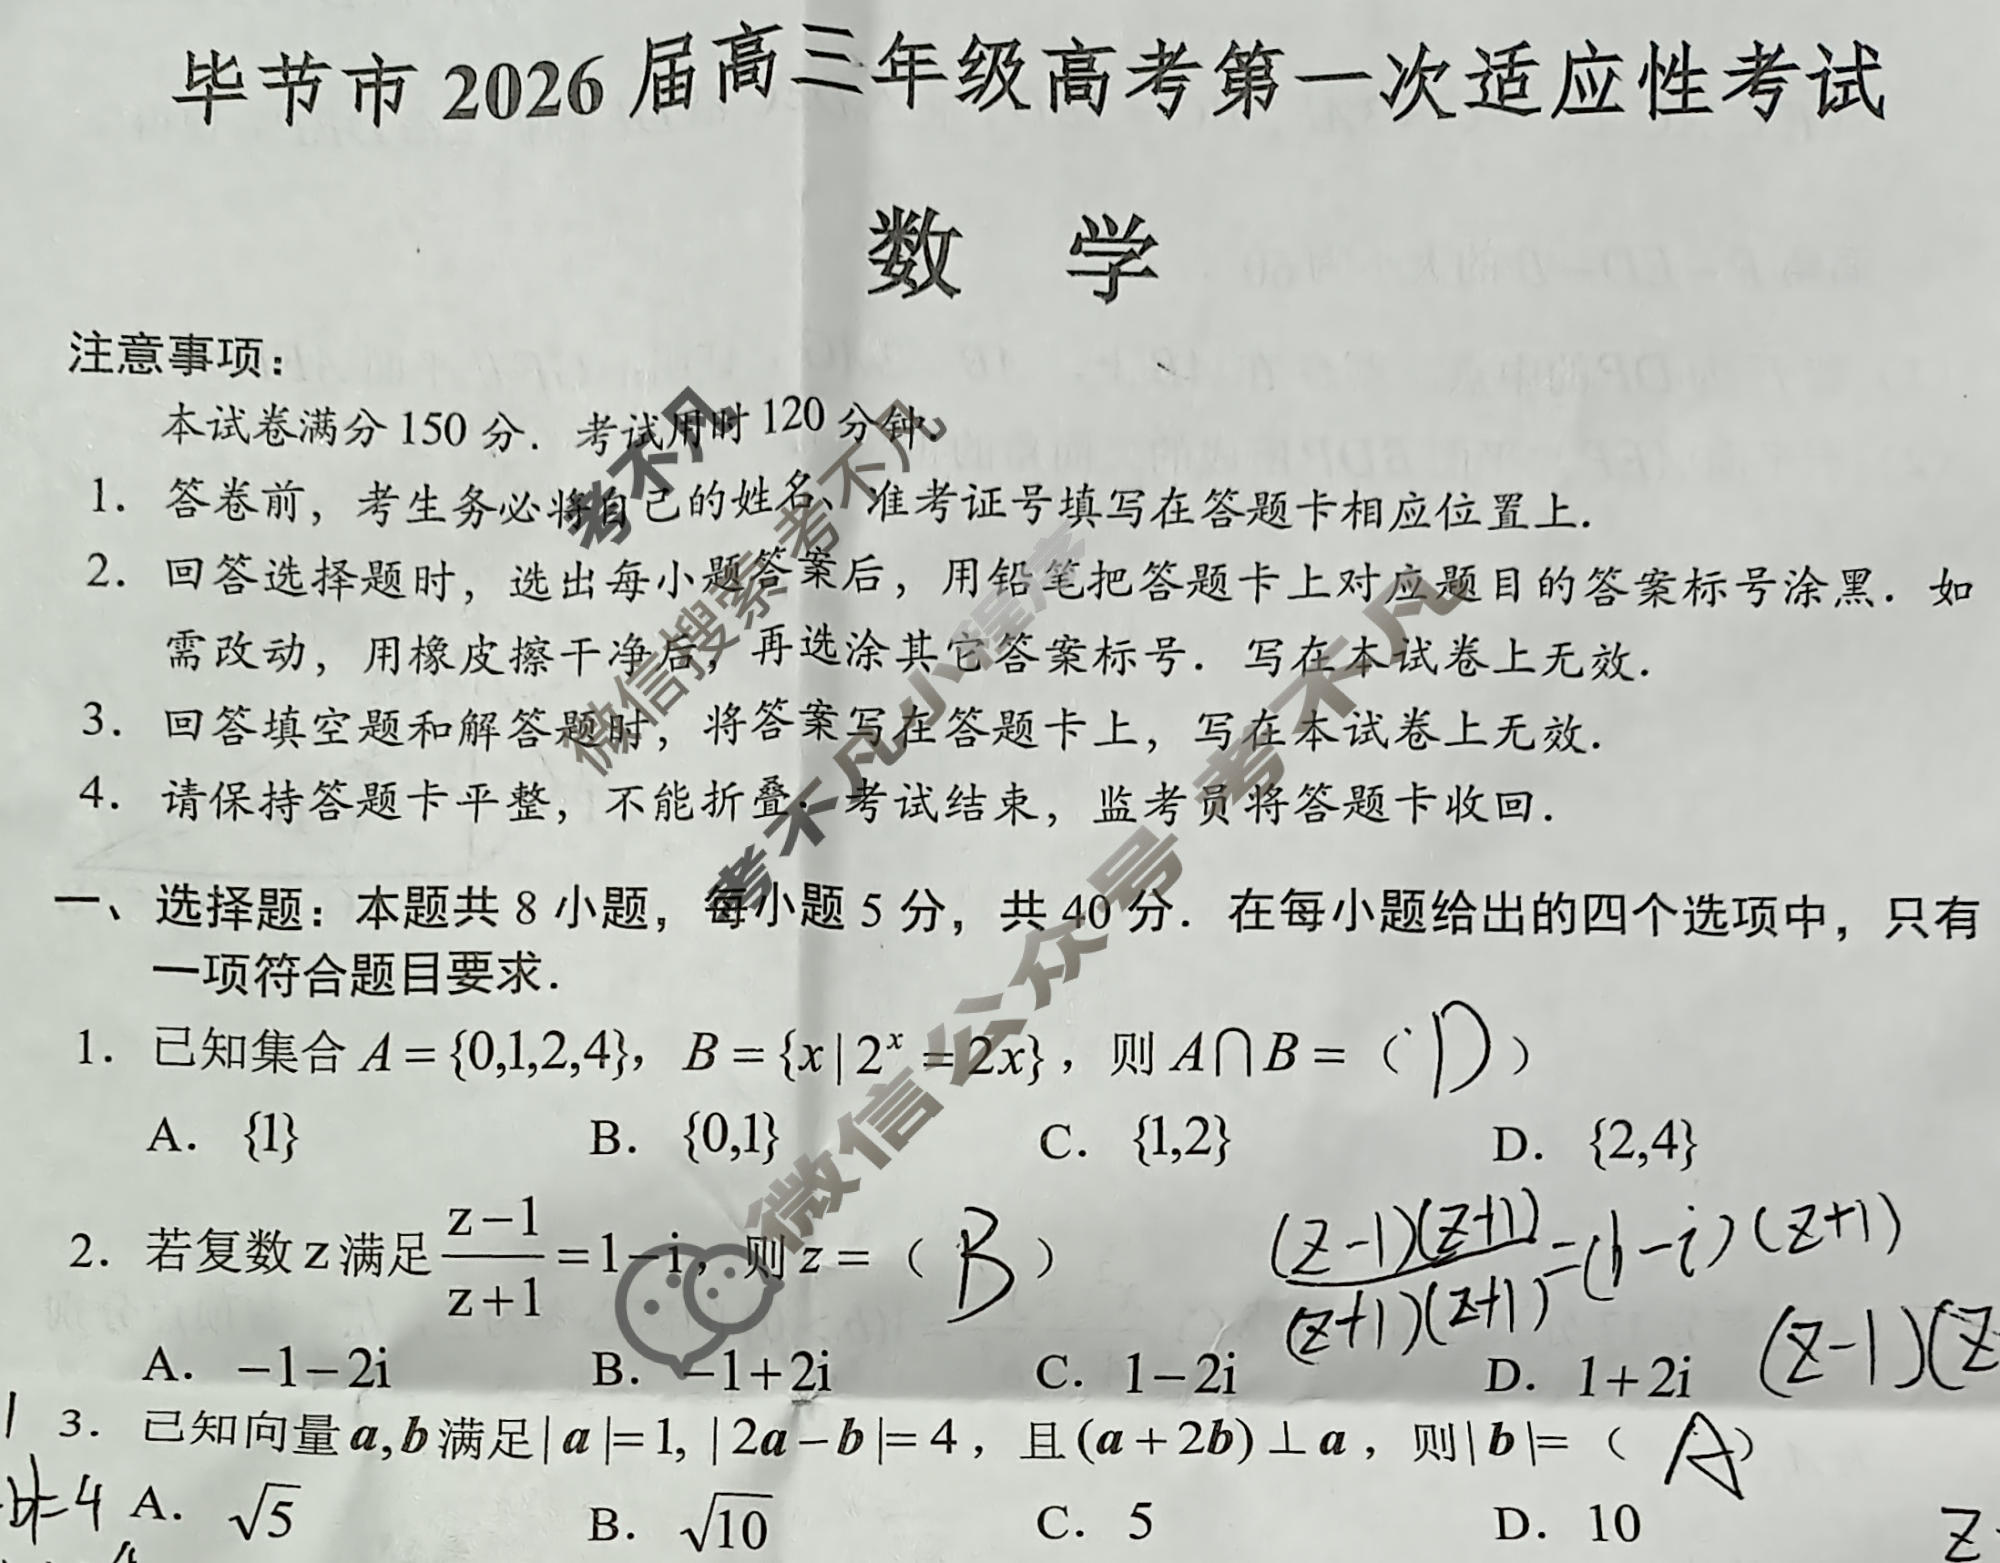 毕节市 2026 届高三年级高考第一次适应性考试
数 学
注意事项：
本试卷满分 150 分．考试用时 120 分钟．
1．答卷前，考生务必将自己的姓名、准考证号填写在答题卡相应位置上．
2．回答选择题时，选出每小题答案后，用铅笔把答题卡上对应题目的答案标号涂黑．如
需改动，用橡皮擦干净后，再选涂其它答案标号．写在本试卷上无效．
3．回答填空题和解答题时，将答案写在答题卡上，写在本试卷上无效．
4．请保持答题卡平整，不能折叠．考试结束，监考员将答题卡收回．
一、选择题：本题共 8 小题，每小题 5 分，共 40 分．在每小题给出的四个选项中，只有
一项符合题目要求．
1．已知集合 A={0,1,2,4}，B={x|2^x=2x}，则 A∩B=（ D ）
A．{1} B．{0,1} C．{1,2} D．{2,4}
2．若复数 z 满足 (z-1)/(z+1)=1-i，则 z=（ B ）
(z-1)(z+1)/(z+1)(z+1)=(1-i)(z+1)
A．-1-2i B．-1+2i C．1-2i D．1+2i
(z-1)(z
3．已知向量 a,b 满足|a|=1, |2a-b|=4，且(a+2b)⊥a，则|b|=（ A ）
A．√5 B．√10 C．5 D．10
b|=4
考不凡
微信搜索 考不凡
考不凡小程序
微信公众号 考不凡